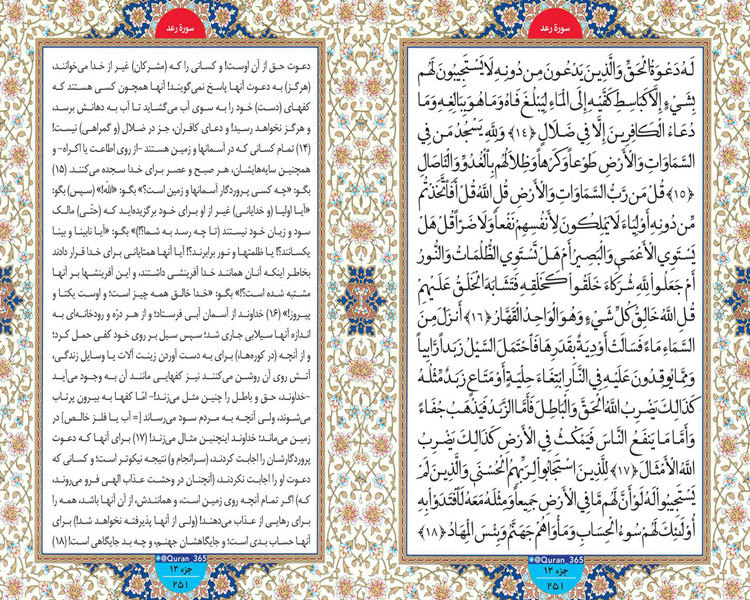 سورهٔ رعد
لَهُ دَعْوَةُ الْحَقِّ وَالَّذِينَ يَدْعُونَ مِن دُونِهِ لَا يَسْتَجِيبُونَ لَهُم
بِشَيْءٍ إِلَّا كَبَاسِطِ كَفَّيْهِ إِلَى الْمَاءِ لِيَبْلُغَ فَاهُ وَمَا هُوَ بِبَالِغِهِ وَمَا
دُعَاءُ الْكَافِرِينَ إِلَّا فِي ضَلَالٍ ﴿۱٤﴾ وَلِلَّهِ يَسْجُدُ مَن فِي
السَّمَاوَاتِ وَالْأَرْضِ طَوْعاً وَكَرْهاً وَظِلَالُهُم بِالْغُدُوِّ وَالْآصَالِ
﴿۱٥﴾ قُلْ مَن رَّبُّ السَّمَاوَاتِ وَالْأَرْضِ قُلِ اللَّهُ قُلْ أَفَاتَّخَذْتُم
مِّن دُونِهِ أَوْلِيَاءَ لَا يَمْلِكُونَ لِأَنفُسِهِمْ نَفْعاً وَلَا ضَرّاً قُلْ هَلْ
يَسْتَوِي الْأَعْمَى وَالْبَصِيرُ أَمْ هَلْ تَسْتَوِي الظُّلُمَاتُ وَالنُّورُ
أَمْ جَعَلُوا لِلَّهِ شُرَكَاءَ خَلَقُوا كَخَلْقِهِ فَتَشَابَهَ الْخَلْقُ عَلَيْهِمْ
قُلِ اللَّهُ خَالِقُ كُلِّ شَيْءٍ وَهُوَ الْوَاحِدُ الْقَهَّارُ ﴿۱٦﴾ أَنزَلَ مِنَ
السَّمَاءِ مَاءً فَسَالَتْ أَوْدِيَةٌ بِقَدَرِهَا فَاحْتَمَلَ السَّيْلُ زَبَداً رَّابِياً
وَمِمَّا يُوقِدُونَ عَلَيْهِ فِي النَّارِ ابْتِغَاءَ حِلْيَةٍ أَوْ مَتَاعٍ زَبَدٌ مِّثْلُهُ
كَذَلِكَ يَضْرِبُ اللَّهُ الْحَقَّ وَالْبَاطِلَ فَأَمَّا الزَّبَدُ فَيَذْهَبُ جُفَاءً
وَأَمَّا مَا يَنفَعُ النَّاسَ فَيَمْكُثُ فِي الْأَرْضِ كَذَلِكَ يَضْرِبُ
اللَّهُ الْأَمْثَالَ ﴿۱٧﴾ لِلَّذِينَ اسْتَجَابُوا لِرَبِّهِمُ الْحُسْنَى وَالَّذِينَ لَمْ
يَسْتَجِيبُوا لَهُ لَوْ أَنَّ لَهُم مَّا فِي الْأَرْضِ جَمِيعاً وَمِثْلَهُ مَعَهُ لَافْتَدَوْا بِهِ
أُوْلَئِكَ لَهُمْ سُوءُ الْحِسَابِ وَمَأْوَاهُمْ جَهَنَّمُ وَبِئْسَ الْمِهَادُ ﴿۱٨﴾
@Quran_365
جزء ۱۳
۲۵۱
سورهٔ رعد
دعوت حق از آن اوست! و کسانی را که (مشرکان) غیر از خدا می‌خوانند،
(هرگز) به دعوت آنها پاسخ نمی‌گویند! آنها همچون کسی هستند که
کفهای (دست) خود را به سوی آب می‌گشاید تا آب به دهانش برسد،
و هرگز نخواهد رسید! و دعای کافران، جز در ضلال (و گمراهی) نیست!
(۱۴) تمام کسانی که در آسمانها و زمین هستند -از روی اطاعت یا اکراه- و
همچنین سایه‌هایشان، هر صبح و عصر برای خدا سجده می‌کنند (۱۵)
بگو: «چه کسی پروردگار آسمانها و زمین است؟» بگو: «الله!» (سپس) بگو:
«آیا اولیا (و خدایانی) غیر از او برای خود برگزیده‌اید که (حتّی) مالک
سود و زیان خود نیستند (تا چه رسد به شما؟!)» بگو: «آیا نابینا و بینا
یکسانند؟! یا ظلمتها و نور برابرند؟! آیا آنها همتایانی برای خدا قرار دادند
بخاطر اینکه آنان همانند خدا آفرینشی داشتند، و این آفرینشها بر آنها
مشتبه شده است؟!» بگو: «خدا خالق همه چیز است؛ و اوست یکتا و
پیروز!» (۱۶) خداوند از آسمان آبی فرستاد؛ و از هر درّه و رودخانه‌ای به
اندازه آنها سیلابی جاری شد؛ سپس سیل بر روی خود کفی حمل کرد؛
و از آنچه (در کوره‌ها)، برای به دست آوردن زینت آلات یا وسایل زندگی،
آتش روی آن روشن می‌کنند نیز کفهایی مانند آن به وجود می‌آید
-خداوند، حق و باطل را چنین مثل می‌زند!- امّا کفها به بیرون پرتاب
می‌شوند، ولی آنچه به مردم سود می‌رساند [= آب یا فلز خالص] در
زمین می‌ماند؛ خداوند اینچنین مثال می‌زند! (۱۷) برای آنها که دعوت
پروردگارشان را اجابت کردند، (سرانجام و) نتیجه نیکوتر است؛ و کسانی که
دعوت او را اجابت نکردند، (آنچنان در وحشت عذاب الهی فرو می‌روند،
که) اگر تمام آنچه روی زمین است، و همانندش، از آن آنها باشد، همه را
برای رهایی از عذاب می‌دهند! (ولی از آنها پذیرفته نخواهد شد!) برای
آنها حساب بدی است؛ و جایگاهشان جهنم، و چه بد جایگاهی است! (۱۸)
@Quran_365
جزء ۱۳
۲۵۱